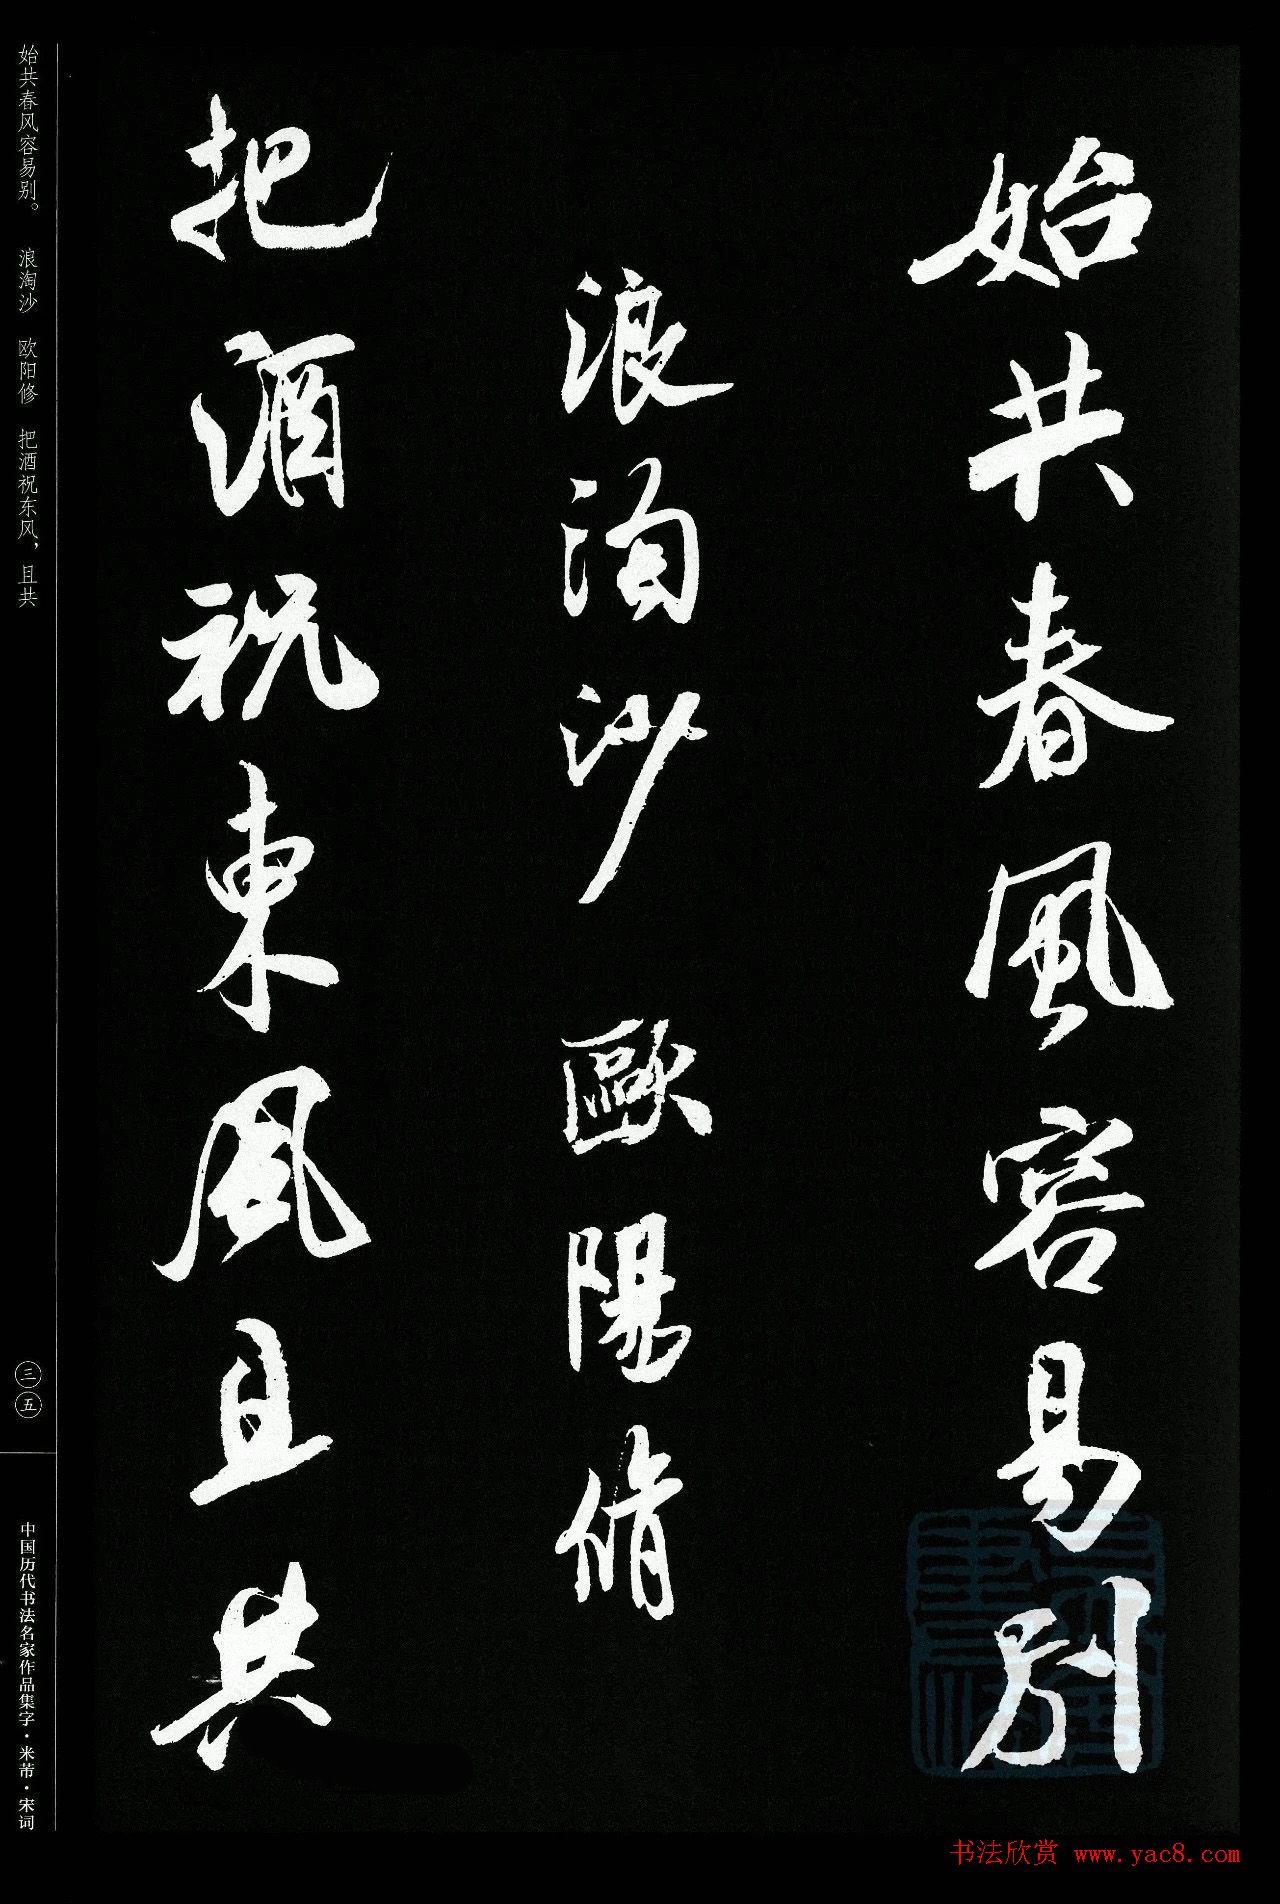 始共春風容易别
浪淘沙 歐陽脩
把酒祝東風且共
始共春风容易别。 浪淘沙 欧阳修 把酒祝东风，且共
三五
中国历代书法名家作品集字·米芾·宋词
书法欣赏 www.yac8.com